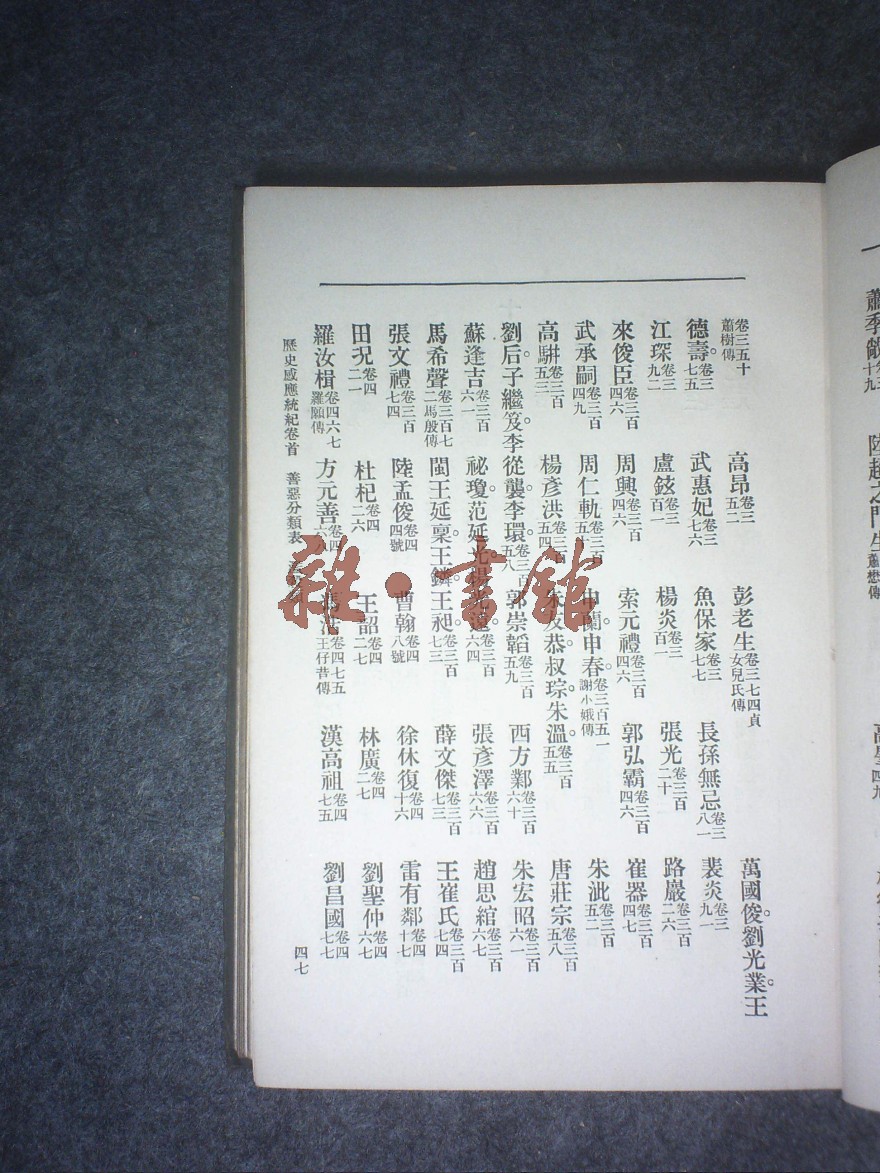 卷三五十蕭樹傳 高昂卷三五二 彭老生卷三七四貞女兒氏傳 萬國俊。劉光業。王
德壽。卷三七五 武惠妃卷三七六 魚保家卷三七七 長孫無忌卷三八一 裴炎卷三九一
江琛卷三九二 盧鉉卷三百一 楊炎卷三百一 張光卷三百二十 路巖卷三百二六
來俊臣卷三百四六 周興卷三百四六 索元禮卷三百四六 郭弘霸卷三百四六 崔器卷三百四七
武承嗣卷三百四九 周仁軌卷三百五 申蘭申春。卷三百五一謝小娥傳 朱泚卷三百五二
高駢卷三百五三 楊彥洪卷三百五四 友恭。叔琮。朱溫。卷三百五五 唐莊宗卷三百五八
劉后。子繼岌。李從襲。李環。卷三百五八 郭崇韜卷三百五九 西方鄴卷三百六十 朱宏昭卷三百六一
蘇逢吉卷三百六一 祕瓊。范延光。楊光遠。卷三百六四 張彥澤卷三百六六 趙思綰卷三百六七
馬希聲卷三百七二馬殷傳 閩王延稟。王鏻。王昶。卷三百七三 薛文傑卷三百七三 王崔氏卷三百七四
張文禮卷三百七四 陸孟俊卷四四號 曹翰卷四八號 徐休復卷四十六 雷有鄰卷四十七
田況卷四二一 杜杞卷四二六 王韶卷四二七 林廣卷四二七 劉聖仲卷四六七
羅汝楫卷四六七羅願傳 方元善卷四六八 卷四七五王仔昔傳 漢高祖卷四七五 劉昌國卷四七七
歷史感應統紀卷首 善惡分類表 四七
雜·書館
蕭季
陸超之門生蕭懋傳